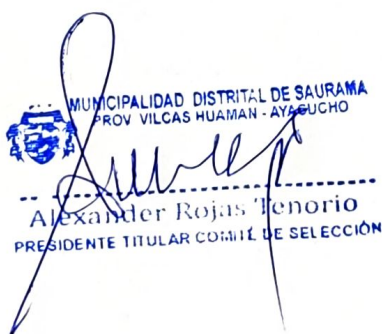 MUNICIPALIDAD DISTRITAL DE SAURAMA
PROV VILCAS HUAMAN - AYACUCHO
Alexander Rojas Tenorio
PRESIDENTE TITULAR COMITÉ DE SELECCIÓN